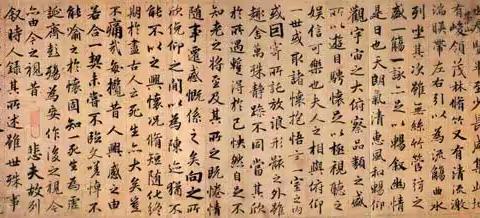 至少長咸集此
有峻領茂林脩竹又有清流激
湍暎帶左右引以為流觴曲水
列坐其次雖無絲竹管弦之
盛一觴一詠亦足以暢敘幽情
是日也天朗氣清惠風和暢仰
觀宇宙之大俯察品類之盛
所以遊目騁懷足以極視聽之
娛信可樂也夫人之相與俯仰
一世或取諸懷抱悟言一室之內
或因寄所託放浪形骸之外雖
趣舍萬殊靜躁不同當其欣
於所遇暫得於己快然自足不
知老之將至及其所之既惓情
隨事遷感慨係之矣向之所
欣俛仰之閒以為陳迹猶不
能不以之興懷況脩短隨化終
期於盡古人云死生亦大矣豈
不痛哉每攬昔人興感之由
若合一契未嘗不臨文嗟悼不
能喻之於懷固知一死生為虛
誕齊彭殤為妄作後之視今
亦由今之視昔悲夫故列
敘時人錄其所述雖世殊事